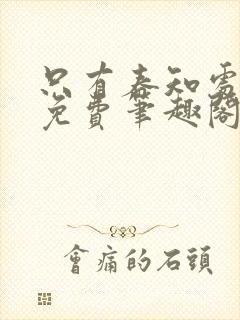 只有春知處
免費筆趣閣
會痛的石頭